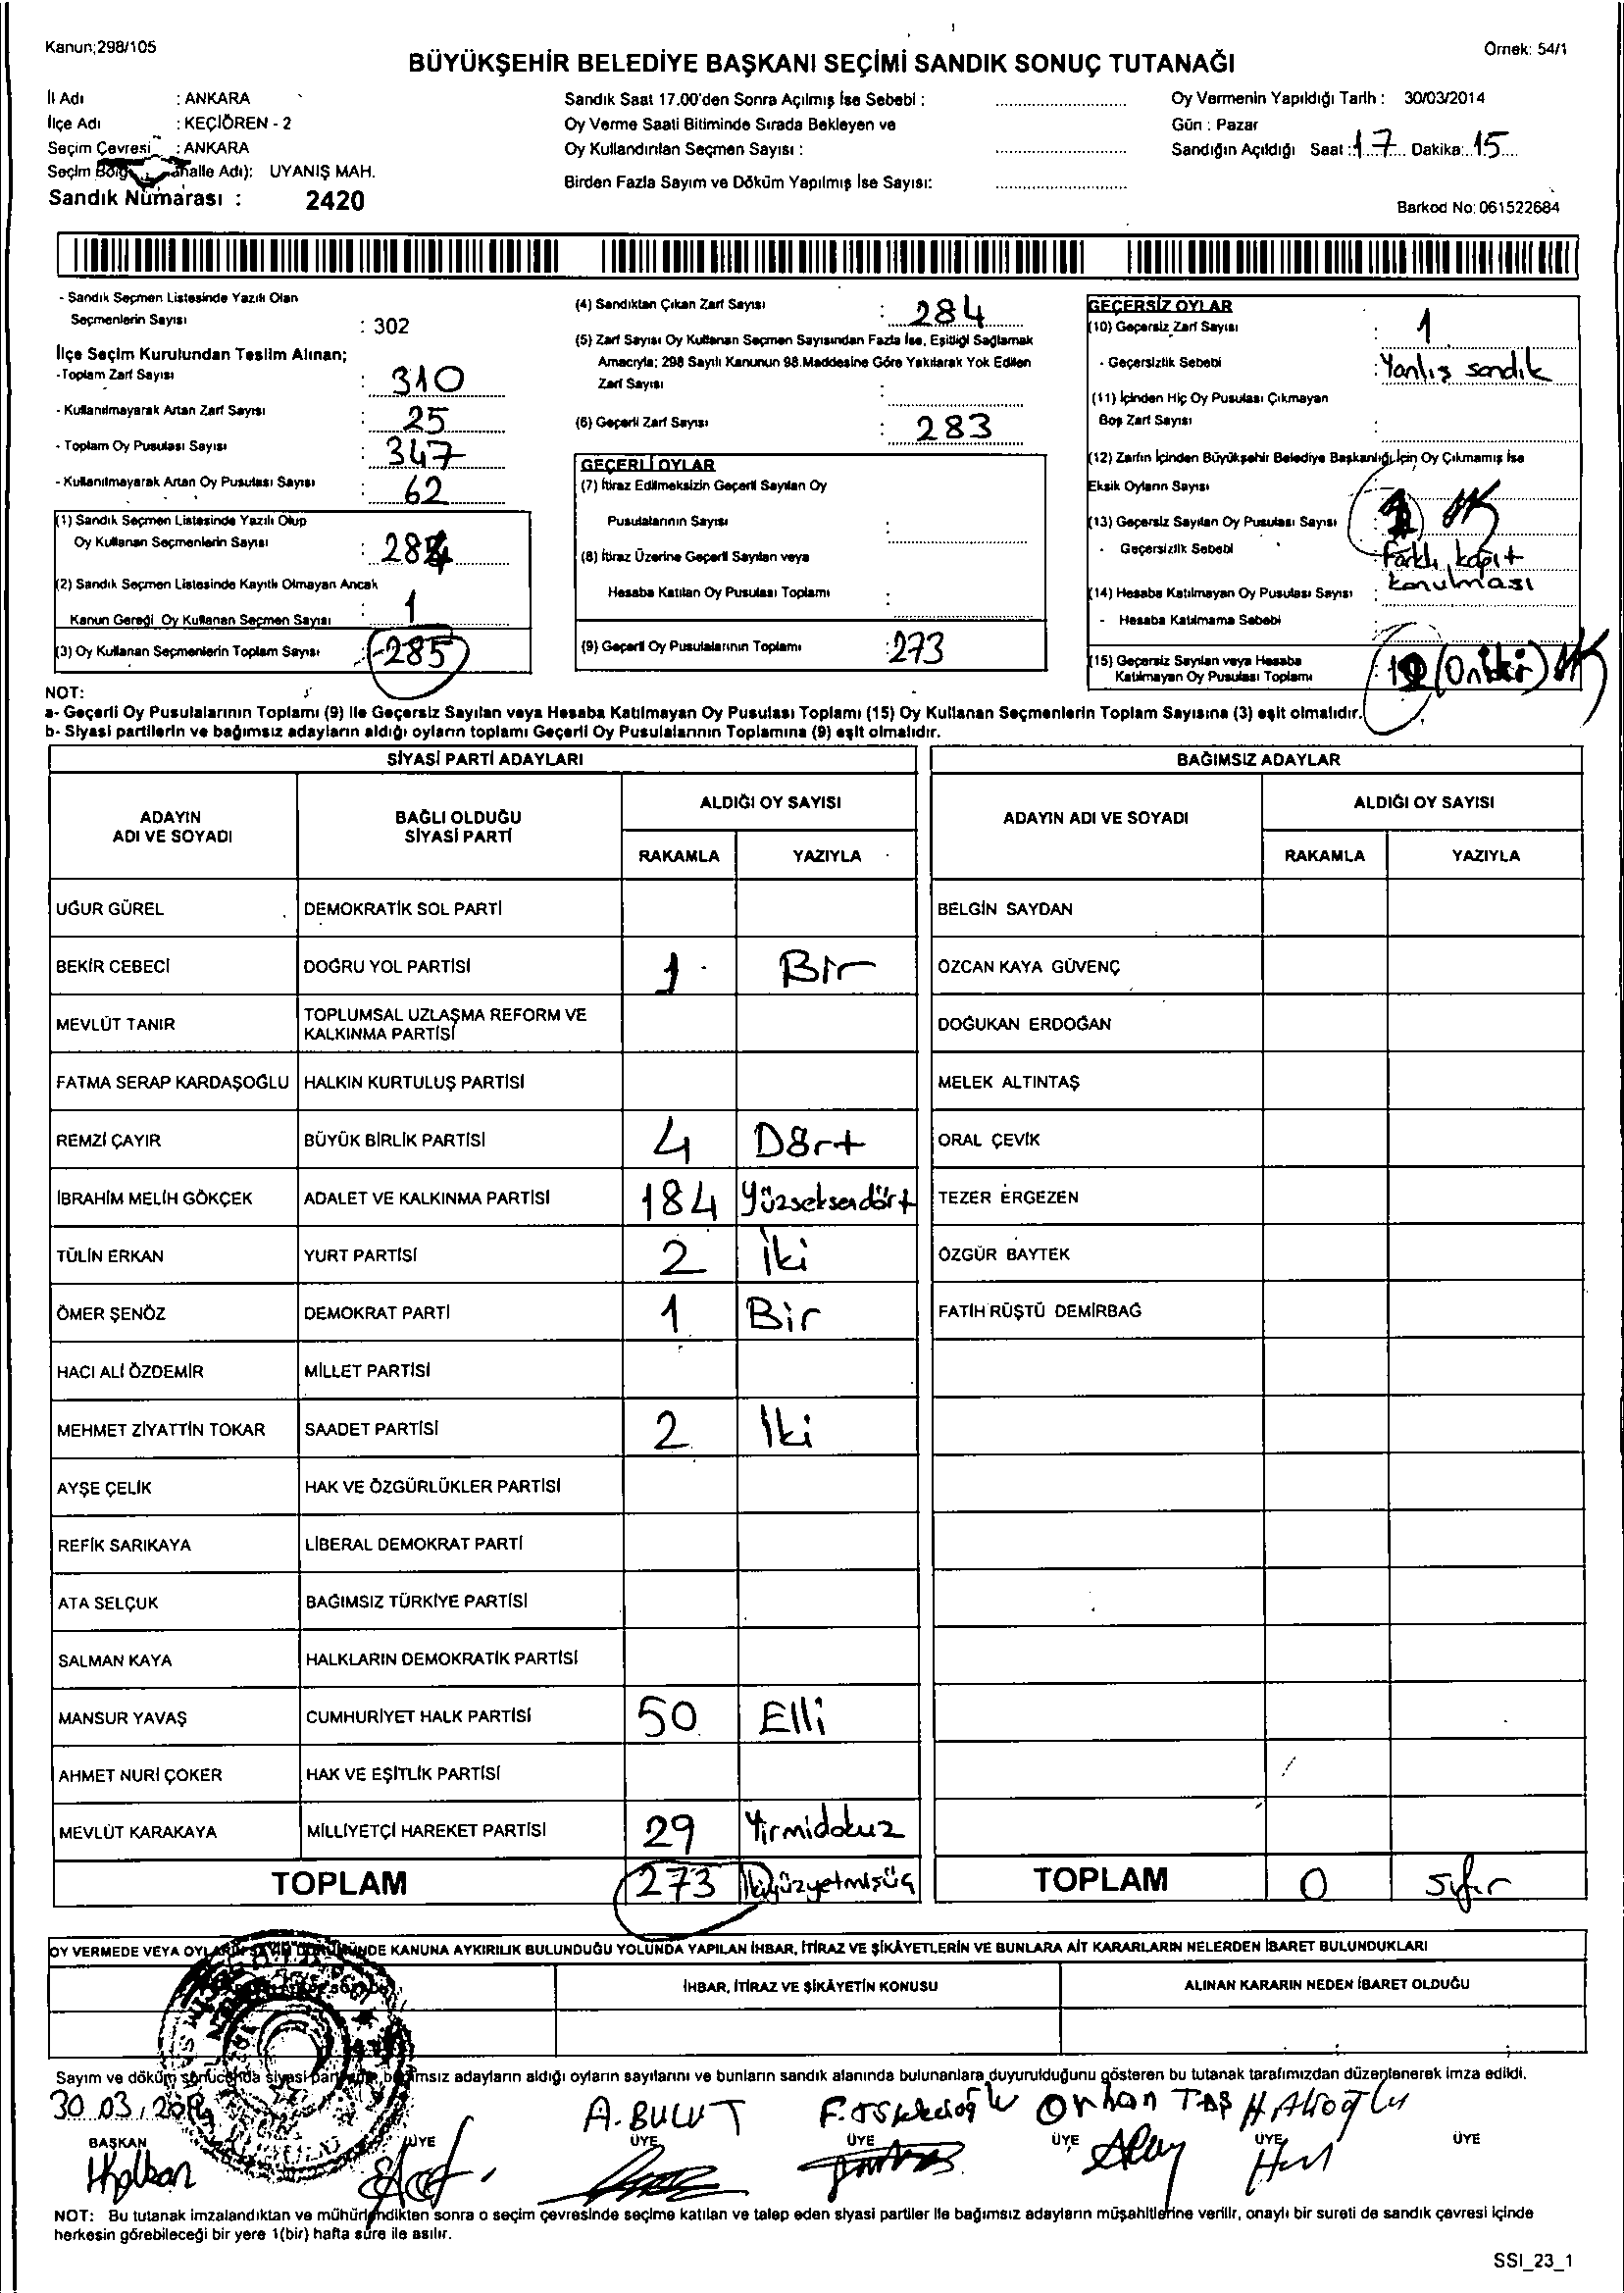 Kanun;298/105
Örnek: 54/1
BÜYÜKŞEHİR BELEDİYE BAŞKANI SEÇİMİ SANDIK SONUÇ TUTANAĞI
İl Adı : ANKARA
İlçe Adı : KEÇİÖREN - 2
Seçim Çevresi : ANKARA
Seçim Adı): UYANIŞ MAH.
Sandık Numarası : 2420
Sandık Saat 17.00'den Sonra Açılmış İse Sebebi :
Oy Verme Saati Bitiminde Sırada Bekleyen ve
Oy Kullandırılan Seçmen Sayısı :
Birden Fazla Sayım ve Döküm Yapılmış İse Sayısı:
Oy Vermenin Yapıldığı Tarih : 30/03/2014
Gün : Pazar
Sandığın Açıldığı Saat : 17 Dakika: 15
Barkod No: 061522684
- Sandık Seçmen Listesinde Yazılı Olan
Seçmenlerin Sayısı : 302
İlçe Seçim Kurulundan Teslim Alınan;
-Toplam Zarf Sayısı : 310
- Kullanılmayarak Artan Zarf Sayısı : 25
- Toplam Oy Pusulası Sayısı : 347
- Kullanılmayarak Artan Oy Pusulası Sayısı : 62
(1) Sandık Seçmen Listesinde Yazılı Olup
Oy Kullanan Seçmenlerin Sayısı : 284
(2) Sandık Seçmen Listesinde Kayıtlı Olmayan Ancak
Kanun Gereği Oy Kullanan Seçmen Sayısı : 1
(3) Oy Kullanan Seçmenlerin Toplam Sayısı : 285
(4) Sandıktan Çıkan Zarf Sayısı : 284
(5) Zarf Sayısı Oy Kullanan Seçmen Sayısından Fazla İse, Eşitliği Sağlamak
Amacıyla; 298 Sayılı Kanunun 98.Maddesine Göre Yakılarak Yok Edilen
Zarf Sayısı :
(6) Geçerli Zarf Sayısı : 283
GEÇERLİ OYLAR
(7) İtiraz Edilmeksizin Geçerli Sayılan Oy
Pusulalarının Sayısı :
(8) İtiraz Üzerine Geçerli Sayılan veya
Hesaba Katılan Oy Pusulası Toplamı :
(9) Geçerli Oy Pusulalarının Toplamı : 273
GEÇERSİZ OYLAR
(10) Geçersiz Zarf Sayısı : 1
- Geçersizlik Sebebi : Yanlış sandık
(11) İçinden Hiç Oy Pusulası Çıkmayan
Boş Zarf Sayısı :
(12) Zarfın İçinden Büyükşehir Belediye Başkanlığı İçin Oy Çıkmamış İse
Eksik Oyların Sayısı
(13) Geçersiz Sayılan Oy Pusulası Sayısı
- Geçersizlik Sebebi Farklı kapıt
konulması
(14) Hesaba Katılmayan Oy Pusulası Sayısı :
- Hesaba Katılmama Sebebi
(15) Geçersiz Sayılan veya Hesaba
Katılmayan Oy Pusulası Toplamı : 12 (Oniki)
NOT:
a- Geçerli Oy Pusulalarının Toplamı (9) İle Geçersiz Sayılan veya Hesaba Katılmayan Oy Pusulası Toplamı (15) Oy Kullanan Seçmenlerin Toplam Sayısına (3) eşit olmalıdır.
b- Siyasi partilerin ve bağımsız adayların aldığı oyların toplamı Geçerli Oy Pusulalarının Toplamına (9) eşit olmalıdır.
SİYASİ PARTİ ADAYLARI
BAĞIMSIZ ADAYLAR
ADAYIN
ADI VE SOYADI
BAĞLI OLDUĞU
SİYASİ PARTİ
ALDIĞI OY SAYISI
RAKAMLA YAZIYLA
ADAYIN ADI VE SOYADI
ALDIĞI OY SAYISI
RAKAMLA YAZIYLA
UĞUR GÜREL DEMOKRATİK SOL PARTİ BELGİN SAYDAN
BEKİR CEBECİ DOĞRU YOL PARTİSİ 1 Bir ÖZCAN KAYA GÜVENÇ
MEVLÜT TANIR TOPLUMSAL UZLAŞMA REFORM VE
KALKINMA PARTİSİ DOĞUKAN ERDOĞAN
FATMA SERAP KARDAŞOĞLU HALKIN KURTULUŞ PARTİSİ MELEK ALTINTAŞ
REMZİ ÇAYIR BÜYÜK BİRLİK PARTİSİ 4 Dört ORAL ÇEVİK
İBRAHİM MELİH GÖKÇEK ADALET VE KALKINMA PARTİSİ 184 Yüzseksendört TEZER ERGEZEN
TÜLİN ERKAN YURT PARTİSİ 2 İki ÖZGÜR BAYTEK
ÖMER ŞENÖZ DEMOKRAT PARTİ 1 Bir FATİH RÜŞTÜ DEMİRBAĞ
HACI ALİ ÖZDEMİR MİLLET PARTİSİ
MEHMET ZİYATTİN TOKAR SAADET PARTİSİ 2 İki
AYŞE ÇELİK HAK VE ÖZGÜRLÜKLER PARTİSİ
REFİK SARIKAYA LİBERAL DEMOKRAT PARTİ
ATA SELÇUK BAĞIMSIZ TÜRKİYE PARTİSİ
SALMAN KAYA HALKLARIN DEMOKRATİK PARTİSİ
MANSUR YAVAŞ CUMHURİYET HALK PARTİSİ 50 Elli
AHMET NURİ ÇOKER HAK VE EŞİTLİK PARTİSİ
MEVLÜT KARAKAYA MİLLİYETÇİ HAREKET PARTİSİ 29 Yirmidokuz
TOPLAM 273 İkiyüzyetmişüç TOPLAM 0 sıfır
OY VERMEDE VEYA KANUNA AYKIRILIK BULUNDUĞU YOLUNDA YAPILAN İHBAR, İTİRAZ VE ŞİKÂYETLERİN VE BUNLARA AİT KARARLARIN NELERDEN İBARET BULUNDUKLARI
İHBAR, İTİRAZ VE ŞİKÂYETİN KONUSU ALINAN KARARIN NEDEN İBARET OLDUĞU
Sayım ve döküm sonucunda siyasi bağımsız adayların aldığı oyların sayılarını ve bunların sandık alanında bulunanlara duyurulduğunu gösteren bu tutanak tarafımızdan düzenlenerek imza edildi.
30.03.2014 A. BULUT Orhan TAŞ H. Alioğlu
BAŞKAN ÜYE ÜYE ÜYE ÜYE ÜYE ÜYE
NOT: Bu tutanak imzalandıktan ve mühürlendikten sonra o seçim çevresinde seçime katılan ve talep eden siyasi partiler ile bağımsız adayların müşahitlerine verilir, onaylı bir sureti de sandık çevresi içinde
herkesin görebileceği bir yere 1(bir) hafta süre ile asılır.
SSI_23_1